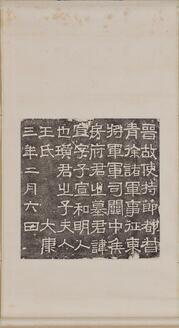 晉故使持節都督
青徐諸軍事征東
將軍軍司關中侯
房府君之墓君諱
宣字子宣和明人
也璜君之子夫人
王氏　大康
三年二月六日